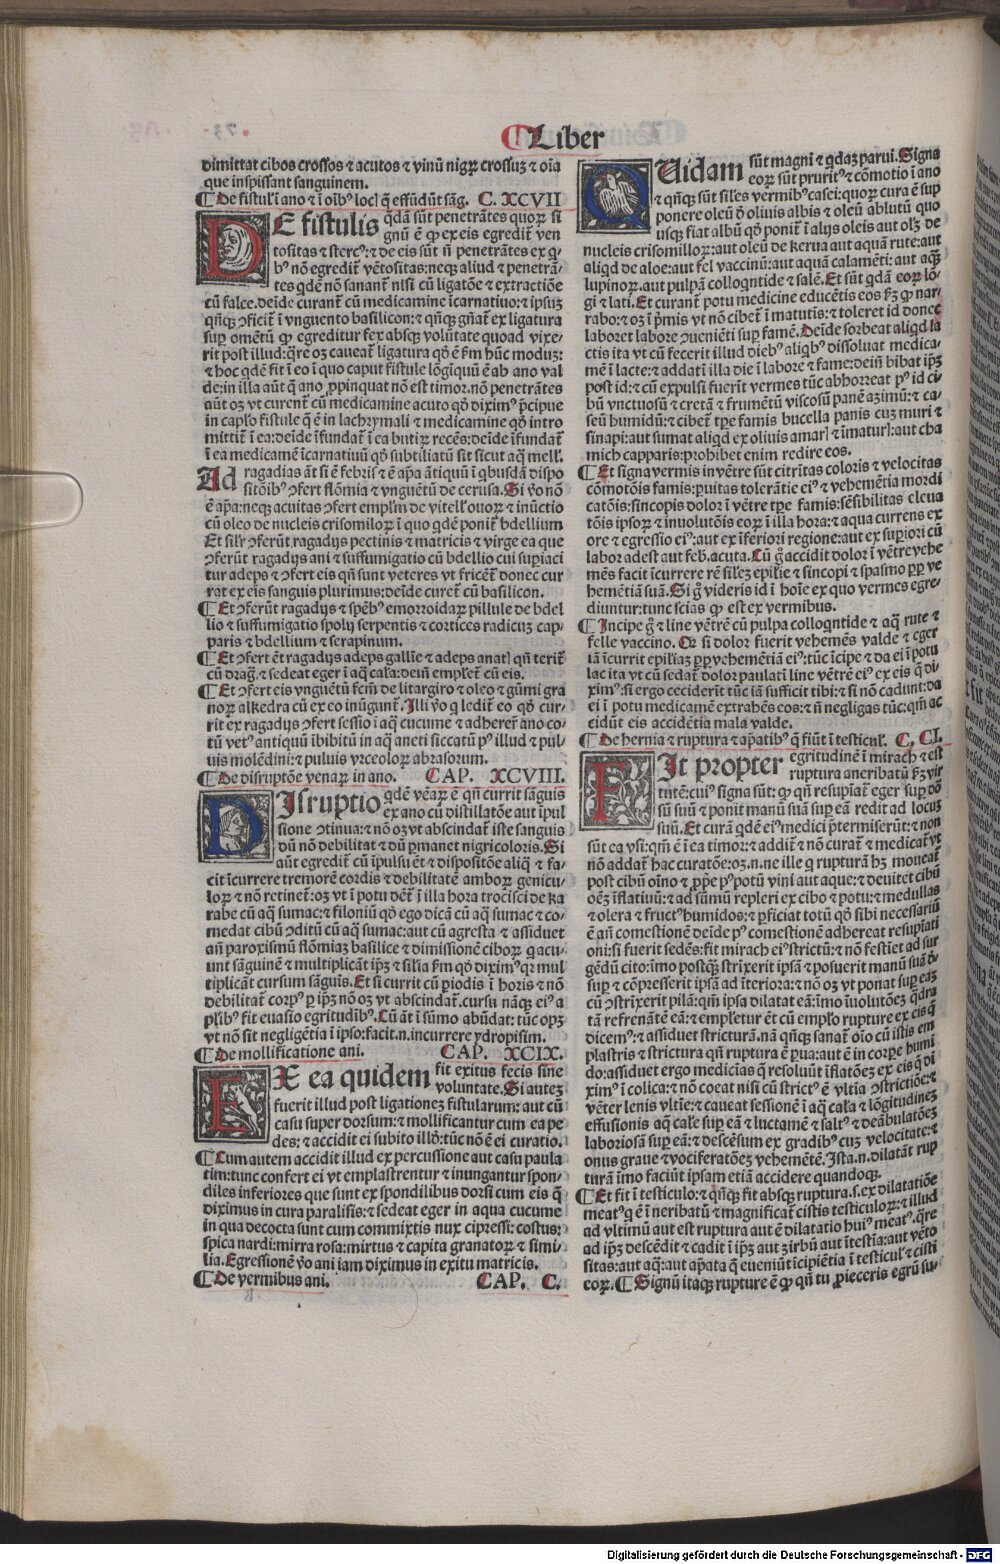 Liber
dimittat cibos crossos ⁊ acutos ⁊ vinū nigrꝫ crossuꝫ ⁊ oīa
que inspissant sanguinem.
¶ De fistul' ī ano ⁊ ī oībꝰ loc' q̄ effūdūt sāg. C. XCVII
DE fistulis qdā sūt penetrātes quorꝫ si
gnū ē ꝙ ex eis egredit̄ ven
tositas ⁊ stercꝰ: ⁊ de eis sūt nō penetrātes ex q̇
bꝰ nō egredit̄ vētositas: neqꝫ aliud ⁊ penetrā-
tes qdē nō sanant̄ nisi cū ligatōe ⁊ extractiōe
cū falce. deīde curant̄ cū medicamine īcarnatiuo: ⁊ ipsuꝫ
qn̄qꝫ ꝯficit̄ ī vnguento basilicon: ⁊ qn̄qꝫ gn̄at̄ ex ligatura
suꝑ omētū ꝙ egreditur fex absqꝫ volūtate quoad vixe-
rit post illud: q̄re oꝫ caueat̄ ligatura qō ē fm̄ hūc moduꝫ:
⁊ hoc qdē fit ī eo ī quo caput fistule lōgīquū ē ab ano val
de: in illa aūt q̄ ano ꝓpinquat nō est timor. nō penetrātes
aūt oꝫ vt curent̄ cū medicamine acuto qō diximꝰ p̄cipue
in caplō fistule q̄ ē in lachrymali ⁊ medicamine qō intro
mittit̄ ī ea: deīde īfundat̄ ī ea butirꝫ recēs: deīde īfundat̄
ī ea medicamē īcarnatiuū qō subtiliatū sit sicut aq̄ mell'.
Ad ragadias āt si ē febris ⁊ ē apa ātiquū ī qbusdā dispo
sitōibꝰ ꝯfert flōmia ⁊ vnguētū de cerusa. Si vō nō
ē apa: neqꝫ acuitas ꝯfert emplm de vitell' ouorꝫ ⁊ inūctio
cū oleo de nucleis crisomilorꝫ ī quo qdē ponit̄ bdellium
Et silr ꝯferūt ragadys pectinis ⁊ matricis ⁊ virge ea que
ꝯferūt ragadys ani ⁊ suffumigatio cū bdellio cui supiaci
tur adeps ⁊ ꝯfert eis qn̄ sunt veteres vt fricēt̄ donec cur
rat ex eis sanguis plurimus: deīde curēt̄ cū basilicon.
¶ Et ꝯferūt ragadys ⁊ spēbꝰ emorroidarꝫ pillule de bdel
lio ⁊ suffumigatio spoly serpentis ⁊ cortices radicuꝫ cap-
paris ⁊ bdellium ⁊ serapinum.
¶ Et ꝯfert ēt ragadys adeps gallīe ⁊ adeps anat' qn̄ terit̄
cū drag. ⁊ sedeat eger ī aq̄ cala: deīn emplet̄ cū eis.
¶ Et ꝯfert eis vnguētū fcm̄ de litargiro ⁊ oleo ⁊ gūmi gra
norꝫ alkedra cū ex eo inūgunt̄. Illi vō q ledit̄ eo qō cur-
rit ex ragadys ꝯfert sessio ī aq̄ cucume ⁊ adheret̄ ano co-
tū vetꝰ antiquū ībibitū in aq̄ aneti siccatū pꝰ illud ⁊ pul-
uis molēdini: ⁊ puluis vrceolorꝫ abrasorum.
¶ De disruptōe venarꝫ in ano. CAP. XCVIII.
DIsruptio qdē vēarꝫ ē qn̄ currit sāguis
ex ano cū distillatōe aut īpul
sione ꝯtinua: ⁊ nō oꝫ vt abscindat̄ iste sanguis
dū nō debilitat ⁊ dū ꝑmanet nigri coloris. Si
aūt egredit̄ cū īpulsu ēt ⁊ dispositōe aliq̄ ⁊ fa-
cit īcurrere tremorē cordis ⁊ debilitatē amborꝫ genicu-
lorꝫ ⁊ nō retinet̄: oꝫ vt ī potu det̄ ī illa hora trocisci de ka
rabe cū aq̄ sumac: ⁊ filoniū qō ego dicā cū aq̄ sumac ⁊ co-
medat cibū ꝯditū cū aq̄ sumac: aut cū agresta ⁊ assiduet
an̄ paroxismū flōmiaꝫ basilice ⁊ dimissionē ciborꝫ q acu-
unt sāguinē ⁊ multiplicāt ip̄ꝫ ⁊ silia fm̄ qō diximꝰ: qꝫ mul
tiplicāt cursum sāguis. Et si currit cū piodis ī horis ⁊ nō
debilitat̄ corpꝰ ꝑ ip̄ꝫ nō oꝫ vt abscindat̄. cursu nāqꝫ eiꝰ a
plībꝰ fit euasio egritudībꝰ. Cū āt ī sūmo abūdat: tūc opꝫ
vt nō sit negligētia ī ipso: facit. n. incurrere ydropisim.
¶ De mollificatione ani. CAP. XCIX.
EX ea quidem fit exitus fecis sine
voluntate. Si auteꝫ
fuerit illud post ligationeꝫ fistularum: aut cū
casu super dorsum: ⁊ mollificantur cum ea pe
des: ⁊ accidit ei subito illō: tūc nō ē ei curatio.
¶ Cum autem accidit illud ex percussione aut casu paula
tim: tunc confert ei vt emplastrentur ⁊ inungantur spon-
diles inferiores que sunt ex spondilibus dorsi cum eis q̄
diximus in cura paralisis: ⁊ sedeat eger in aqua cucume
in qua decocta sunt cum commixtis nux cipressi: costus:
spica nardi: mirra rosa: mirtus ⁊ capita granatorꝫ ⁊ simi-
lia. Egressionē vō ani iam diximus in exitu matricis.
¶ De vermibus ani. CAP. C.
QUidam sūt magni ⁊ qdaꝫ parui. Signa
eorꝫ sūt pruritꝰ ⁊ cōmotio ī ano
⁊ qn̄qꝫ sūt siles vermibꝰ casei: quorꝫ cura ē suꝑ
ponere oleū ō oliuis albis ⁊ oleū ablutū quo
usqꝫ fiat albū qō ponit̄ ī alys oleis aut olꝫ de
nucleis crisomillorꝫ: aut oleū de kerua aut aquā rute: aut
aliqd de aloe: aut fel vaccinū: aut aquā calamēti: aut aqꝫ
lupinorꝫ. aut pulpā colloq̄ntide ⁊ salē. Et sūt qdā eorꝫ lō-
gi ⁊ lati. Et curant̄ potu medicine educētis eos fꝫ ꝙ nar-
rabo: ⁊ oꝫ ī p̄mis vt nō cibet̄ ī matutīs: ⁊ toleret id donec
laboret labore ꝯueniēti suꝑ famē. Deīde sorbeat aliqd la
ctis ita vt cū fecerit illud diebꝰ aliqbꝰ dissoluat medica-
mē ī lacte: ⁊ addat ī illa die ī labore ⁊ fame: deīn bibat ip̄ꝫ
post id: ⁊ cū expulsi fuerīt vermes tūc abhorreat pꝰ id ci-
bū vnctuosū ⁊ cretā ⁊ frumētū viscosū panē azimū: ⁊ ca-
seū humidū: ⁊ cibet̄ tpe famis bucella panis cuꝫ muri ⁊
sinapi: aut sumat aliqd ex oliuis amar' ⁊ īmatur': aut cha
mich capparis: prohibet enim redire eos.
¶ Et signa vermis in vētre sūt citrītas coloris ⁊ velocitas
cōmotōis famis: pruitas tolerātie eiꝰ ⁊ vehemētia mordi
catōis: sincopis dolor ī vētre tpe famis: sēsibilitas eleua
tōis ipsorꝫ ⁊ inuolutōis eorꝫ ī illa hora: ⁊ aqua currens ex
ore ⁊ egressio eiꝰ: aut ex īferiori regione: aut ex supiori cū
labor adest aut feb. acuta. Cū g̊ accidit dolor ī vētre vehe
mēs facit īcurrere rē silēꝫ epilīe ⁊ sincopi ⁊ spasmo ꝑꝑ ve
hemētiā suā. Si g̊ videris id ī hoīe ex quo vermes egre-
diuntur: tunc scias ꝙ est ex vermibus.
¶ Incipe g̊ ⁊ line vētrē cū pulpa colloq̄ntide ⁊ aq̄ rute ⁊
felle vaccino. Qꝫ si dolor fuerit vehemēs valde ⁊ eger
iā īcurrit epiliāꝫ ꝑꝑ vehemētiā eiꝰ: tūc īcipe ⁊ da ei ī potu
lac ita vt cū sedat̄ dolor paulatī line vētrē eiꝰ ex eis q̄ di-
ximꝰ: si ergo ceciderīt tūc iā sufficit tibi: ⁊ si nō cadunt: da
ei ī potu medicamē extrahēs eos: ⁊ nō negligas tūc: qm̄ ac
cidūt eis accidētia mala valde.
¶ De hernia ⁊ ruptura ⁊ apatibꝰ q̄ fiūt ī testicul'. C. CI.
FIt propter egritudinē ī mirach ⁊ est
ruptura ancribatū fꝫ vir
tutē: cuiꝰ signa sūt: ꝙ qn̄ resupīat̄ eger suꝑ dō
sū suū ⁊ ponit manū suā suꝑ eā redit ad locuꝫ
suū. Et curā qdē eiꝰ medici p̄termiserūt: ⁊ non
sūt ea vsi: qm̄ ē ī ea timor: ⁊ addit̄ ⁊ nō curat̄ ⁊ medicat̄ vt
nō addat̄ hac curatōe: oꝫ. n. ne ille q rupturā hꝫ moueat̄
post cibū oīno ⁊ ꝓpe pꝰ potū vini aut aque: ⁊ deuitet cibū
oēꝫ īflatiuū: ⁊ ad sūmū repleri ex cibo ⁊ potu: ⁊ medullas
⁊ olera ⁊ fructꝰ humidos: ⁊ ꝑficiat totū qō sibi necessariū
ē an̄ comestionē deīde pꝰ comestionē adhereat resupīati
oni: si fuerit sedēs: fit mirach eiꝰ strictū: ⁊ nō festīet ad sur
gēdū cito: īmo postqꝫ strixerit ipsā ⁊ posuerit manū suā ō
suꝑ ⁊ cōpresserit ipsā ad īteriora: ⁊ nō oꝫ vt ponat suꝑ eaꝫ
cū ꝯstrīxerit pilā: qm̄ ipsa dilatat eā: īmo īuolutōeꝫ q̄dra
tā refrenātē eā: ⁊ empletur ēt cū emplo rupture ex eis q̄
dicemꝰ: ⁊ assiduet stricturā. nā qn̄qꝫ sanat̄ oīo cū istis em
plastris ⁊ strictura qn̄ ruptura ē ꝑua: aut ē in corpe humi
do: assiduet ergo medicias q̄ resoluūt īflatōeꝫ ex eis q̄ di
ximꝰ ī colica: ⁊ nō coeat nisi cū strictꝰ ē vltīa ꝯstrictiōe: ⁊
vēter lenis vltīe: ⁊ caueat sessionē ī aq̄ cala ⁊ lōgitudineꝫ
effusionis aq̄ cale suꝑ eā ⁊ luctamē ⁊ saltꝰ ⁊ deābulatōeꝫ
laboriosā suꝑ eā: ⁊ descēsum ex gradibꝰ cuꝫ velocitate: ⁊
onus graue ⁊ vociferatōeꝫ vehemētē. Ista. n. dilatāt rup
turā īmo faciūt ipsam etiā accidere quandoqꝫ.
¶ Et fit ī testiculo: ⁊ qn̄qꝫ fit absqꝫ ruptura. s. ex dilatatiōe
meatꝰ q ē ī neribatū ⁊ magnificat̄ cistis testiculorꝫ: ⁊ illud
ad vltimū aut est ruptura aut ē dilatatio huiꝰ meatꝰ. q̄re
ad ip̄ꝫ descēdit ⁊ cadit ī ip̄ꝫ aut zirbū aut ītestīa: aut vēto
sitas: aut aq̄: aut apata q̄ eueniūt īcipiētia ī testicul' ⁊ cisti
eorꝫ. ¶ Signū itaqꝫ rupture ē ꝙ qn̄ tu ꝓieceris egrū su-
Digitalisierung gefördert durch die Deutsche Forschungsgemeinschaft - DFG